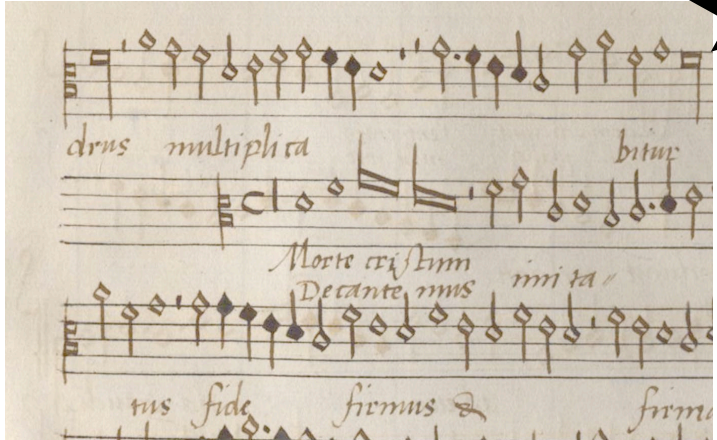 drus multiplica bitur
Morte cristum imi ta
Decante mus
tus fide firmus & firma